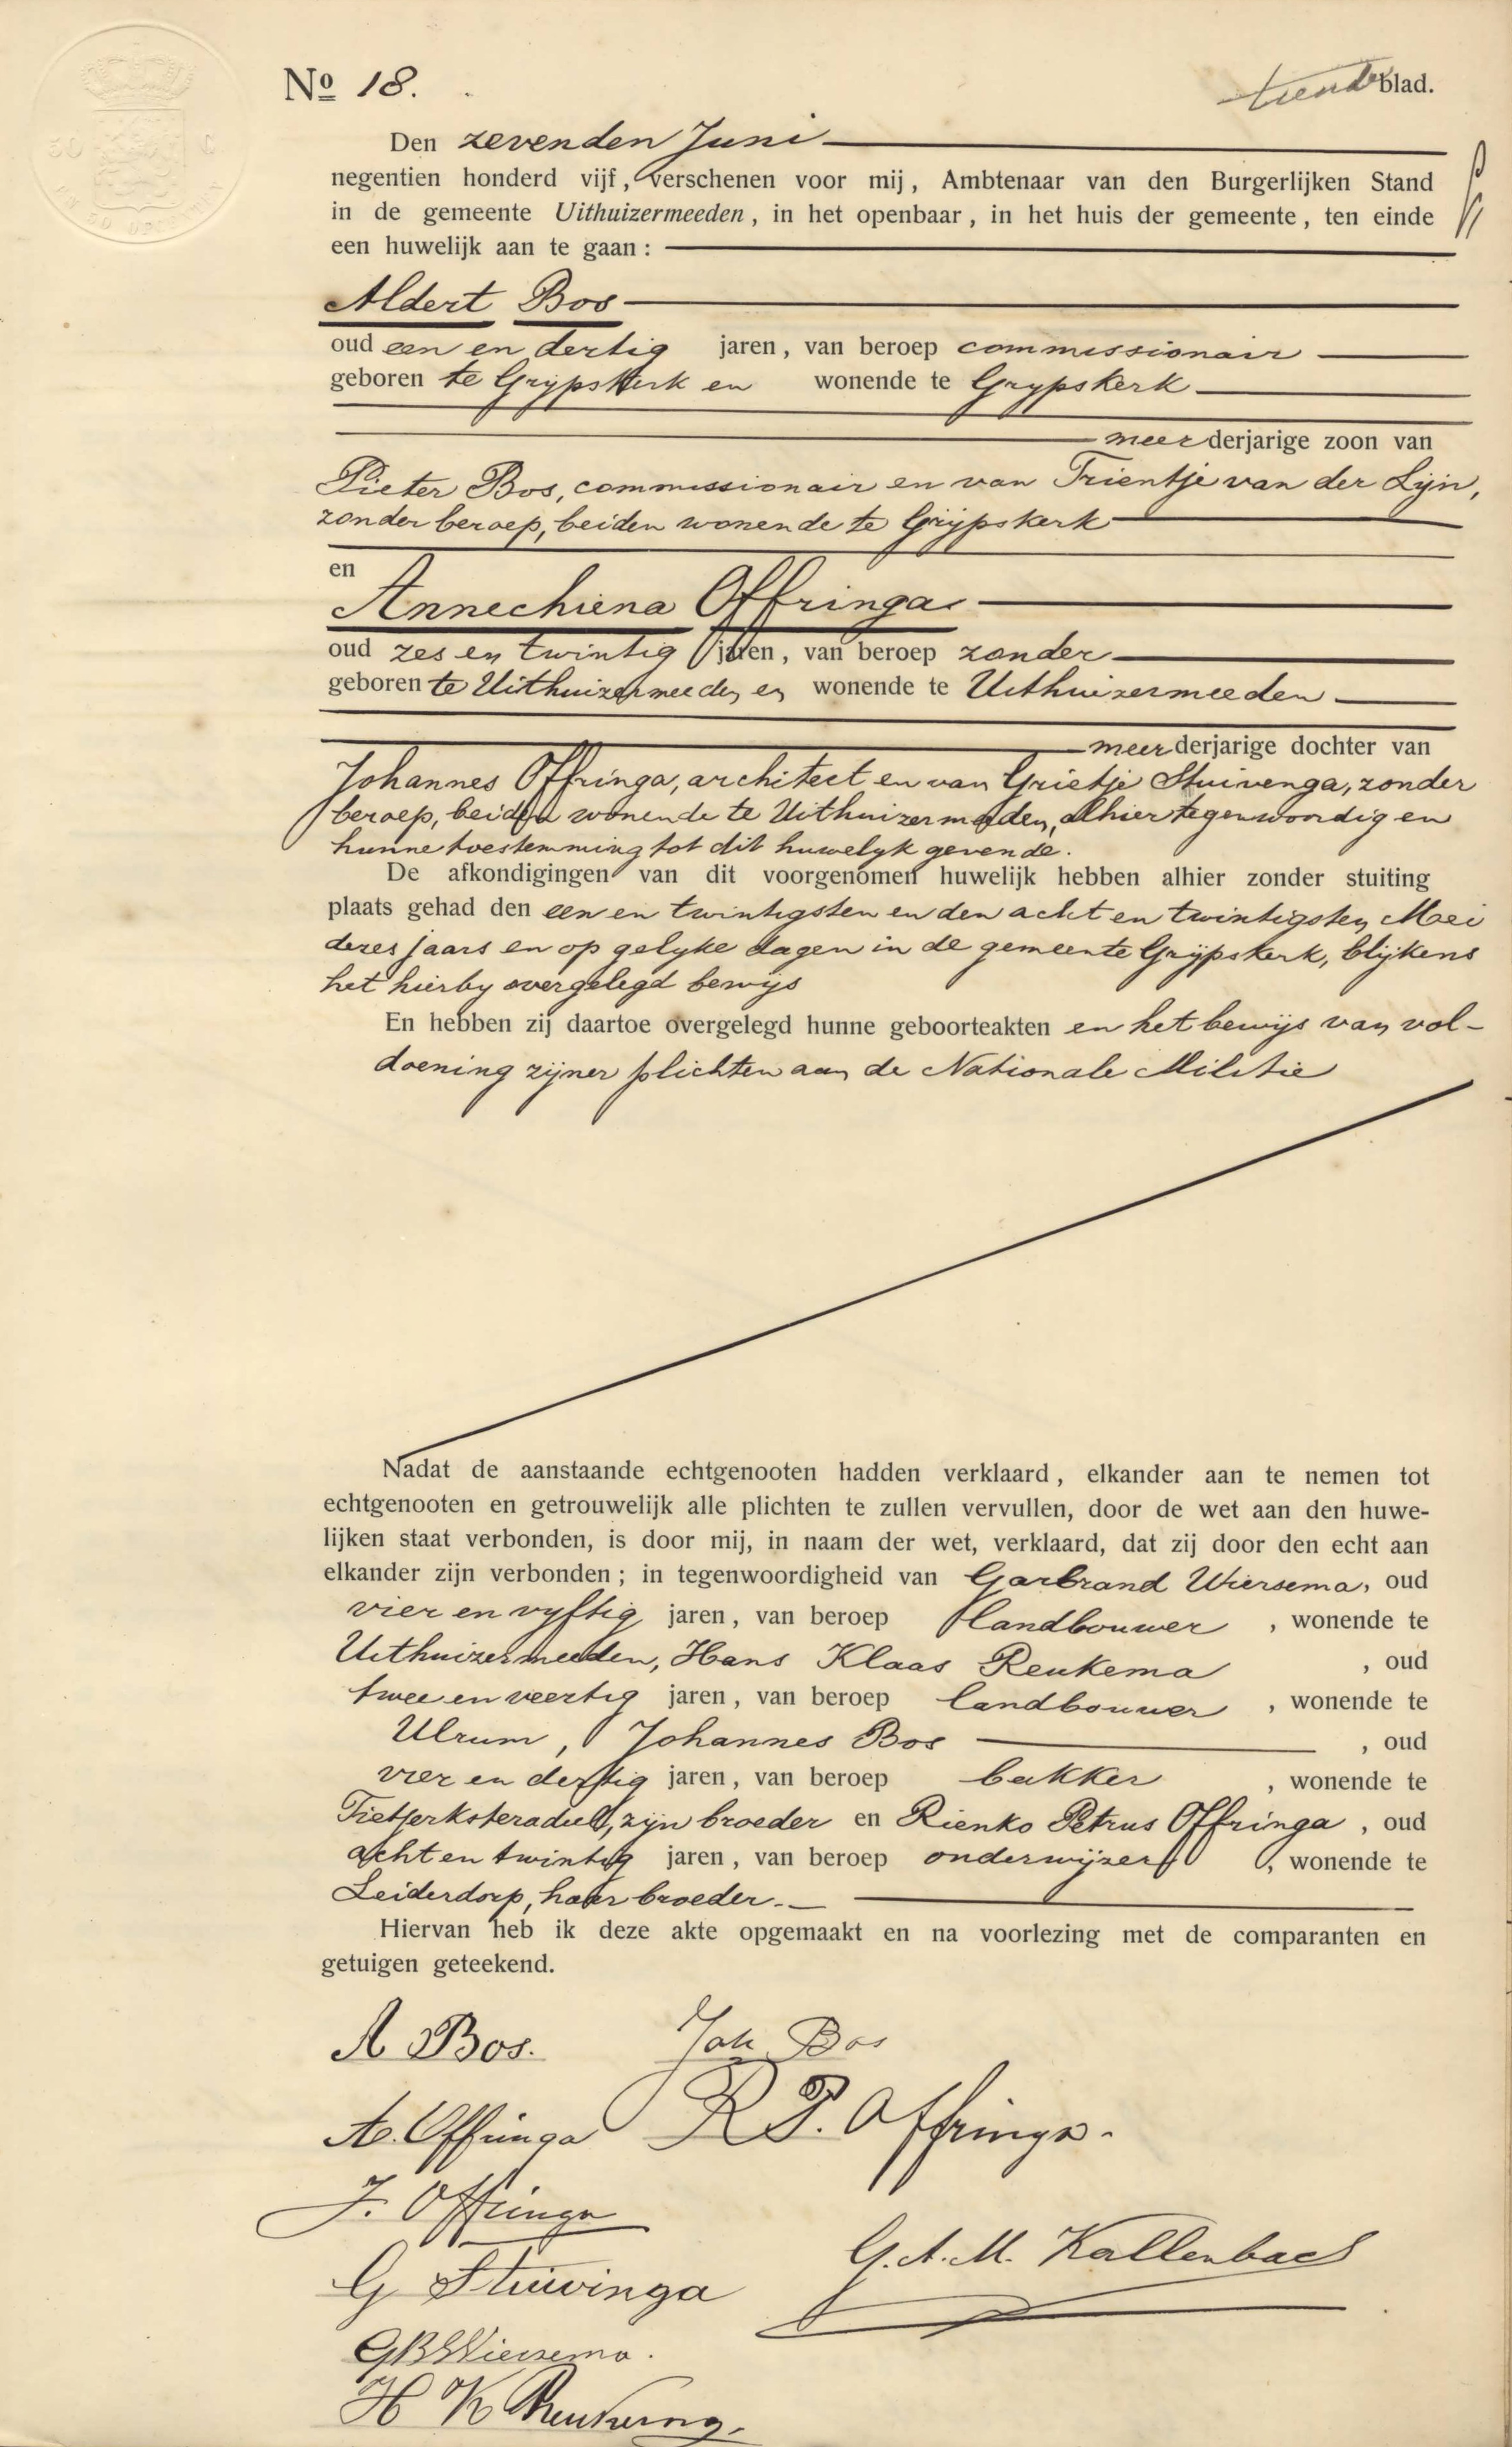 No 18.
tiende blad.
Den zevenden Juni
negentien honderd vijf, verschenen voor mij, Ambtenaar van den Burgerlijken Stand
in de gemeente Uithuizermeeden, in het openbaar, in het huis der gemeente, ten einde
een huwelijk aan te gaan:
Aldert Bos
oud een en dertig jaren, van beroep commissionair
geboren te Grijpskerk en wonende te Grypskerk
meerderjarige zoon van
Pieter Bos, commissionair en van Trientje van der Lijn,
zonder beroep, beiden wonende te Grijpskerk
en
Annechiena Offringa
oud zes en twintig jaren, van beroep zonder
geboren te Uithuizermeeden en wonende te Uithuizermeeden
meerderjarige dochter van
Johannes Offringa, architect en van Grietje Stuivenga, zonder
beroep, beiden wonende te Uithuizermeeden, alhier tegenwoordig en
hunne toestemming tot dit huwelyk gevende.
De afkondigingen van dit voorgenomen huwelijk hebben alhier zonder stuiting
plaats gehad den een en twintigsten en den acht en twintigsten Mei
dezes jaars en op gelyke dagen in de gemeente Grijpskerk, blijkens
het hierby overgelegd bewijs
En hebben zij daartoe overgelegd hunne geboorteakten en het bewijs van vol-
doening zijner plichten aan de Nationale Militie
Nadat de aanstaande echtgenooten hadden verklaard, elkander aan te nemen tot
echtgenooten en getrouwelijk alle plichten te zullen vervullen, door de wet aan den huwe-
lijken staat verbonden, is door mij, in naam der wet, verklaard, dat zij door den echt aan
elkander zijn verbonden; in tegenwoordigheid van Garbrand Wiersema, oud
vier en vyftig jaren, van beroep landbouwer, wonende te
Uithuizermeeden, Hans Klaas Reukema, oud
twee en veertig jaren, van beroep landbouwer, wonende te
Ulrum, Johannes Bos, oud
vier en dertig jaren, van beroep bakker, wonende te
Tietjerksteradeel, zijn broeder en Rienko Petrus Offringa, oud
acht en twintig jaren, van beroep onderwijzer, wonende te
Leiderdorp, haar broeder.
Hiervan heb ik deze akte opgemaakt en na voorlezing met de comparanten en
getuigen geteekend.
A Bos.
Joh Bos
A. Offringa
R P. Offringa.
J. Offringa
G. A. M. Kallenbach
G Stuivinga
GB Wiersema.
H K Reukema.